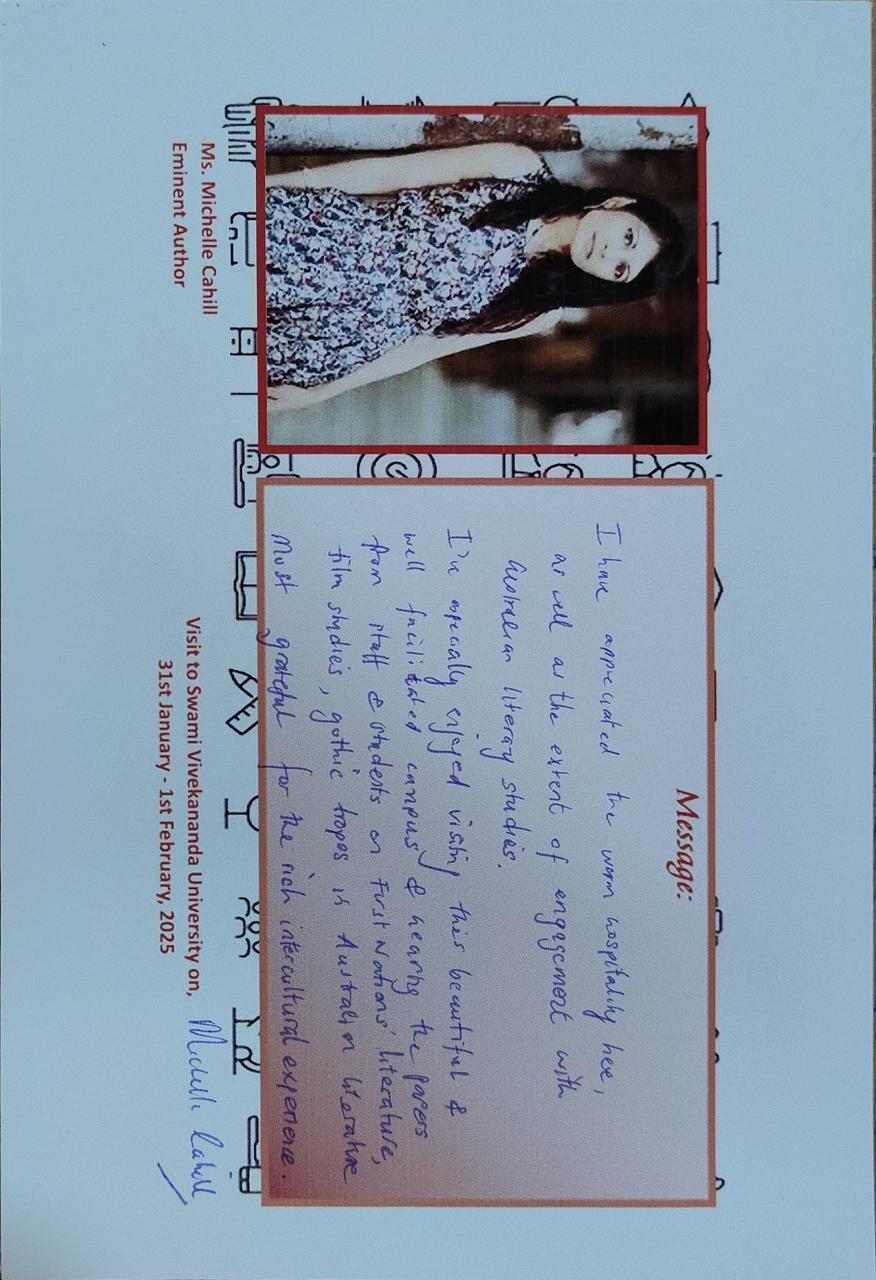 Message:
I have appreciated the warm hospitality here,
as well as the extent of engagement with
Australian literary studies.
I've especially enjoyed visiting this beautiful &
well facilitated campus & hearing the papers
from staff & students on First Nations' literature,
film studies, gothic tropes in Australian literature
Most grateful for the rich intercultural experience.
Ms. Michelle Cahill
Eminent Author
Visit to Swami Vivekananda University on,
31st January - 1st February, 2025
Michelle Cahill